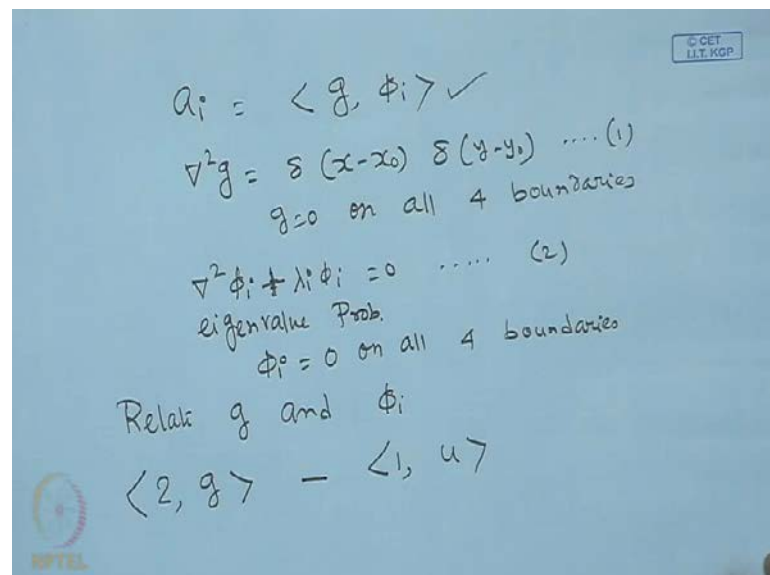 © CET
I.I.T. KGP
aᵢ = < g, ϕᵢ > ✓
∇²g = δ (x-x₀) δ (y-y₀) .... (1)
g=0 on all 4 boundaries
∇²ϕᵢ + λᵢϕᵢ = 0 ..... (2)
eigenvalue Prob.
ϕᵢ = 0 on all 4 boundaries
Relate g and ϕᵢ
<2, g> - <1, u>
NPTEL